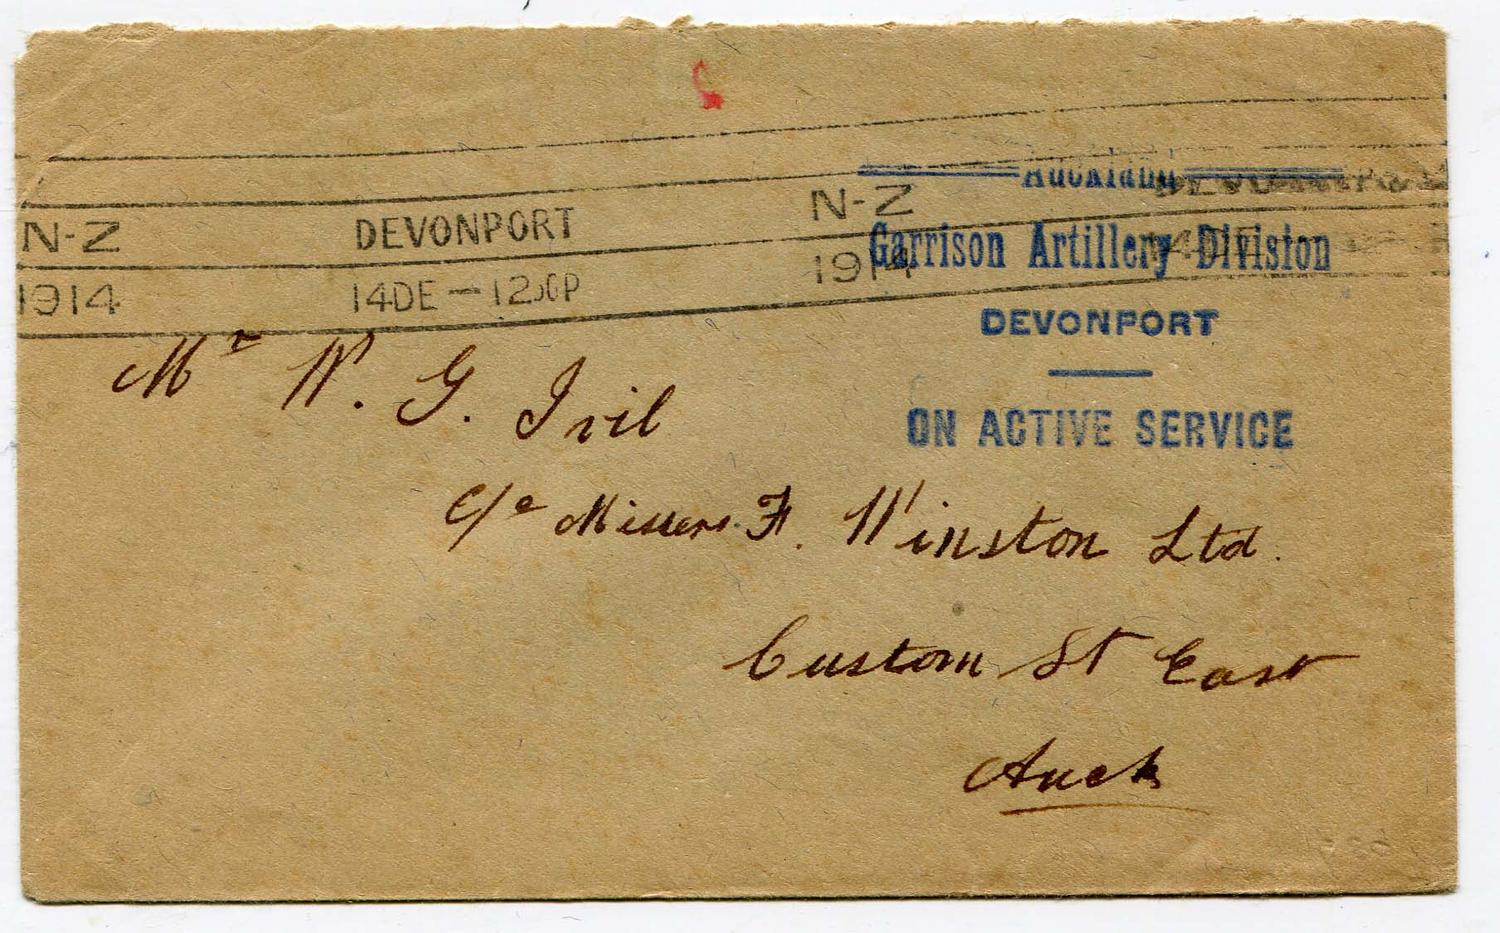 N-Z DEVONPORT N-Z
1914 14DE — 12 P 1914
Auckland
Garrison Artillery Division
DEVONPORT
ON ACTIVE SERVICE
Mr W. G. Ivil
c/o Messrs. F. Winston Ltd.
Custom St East
Auck